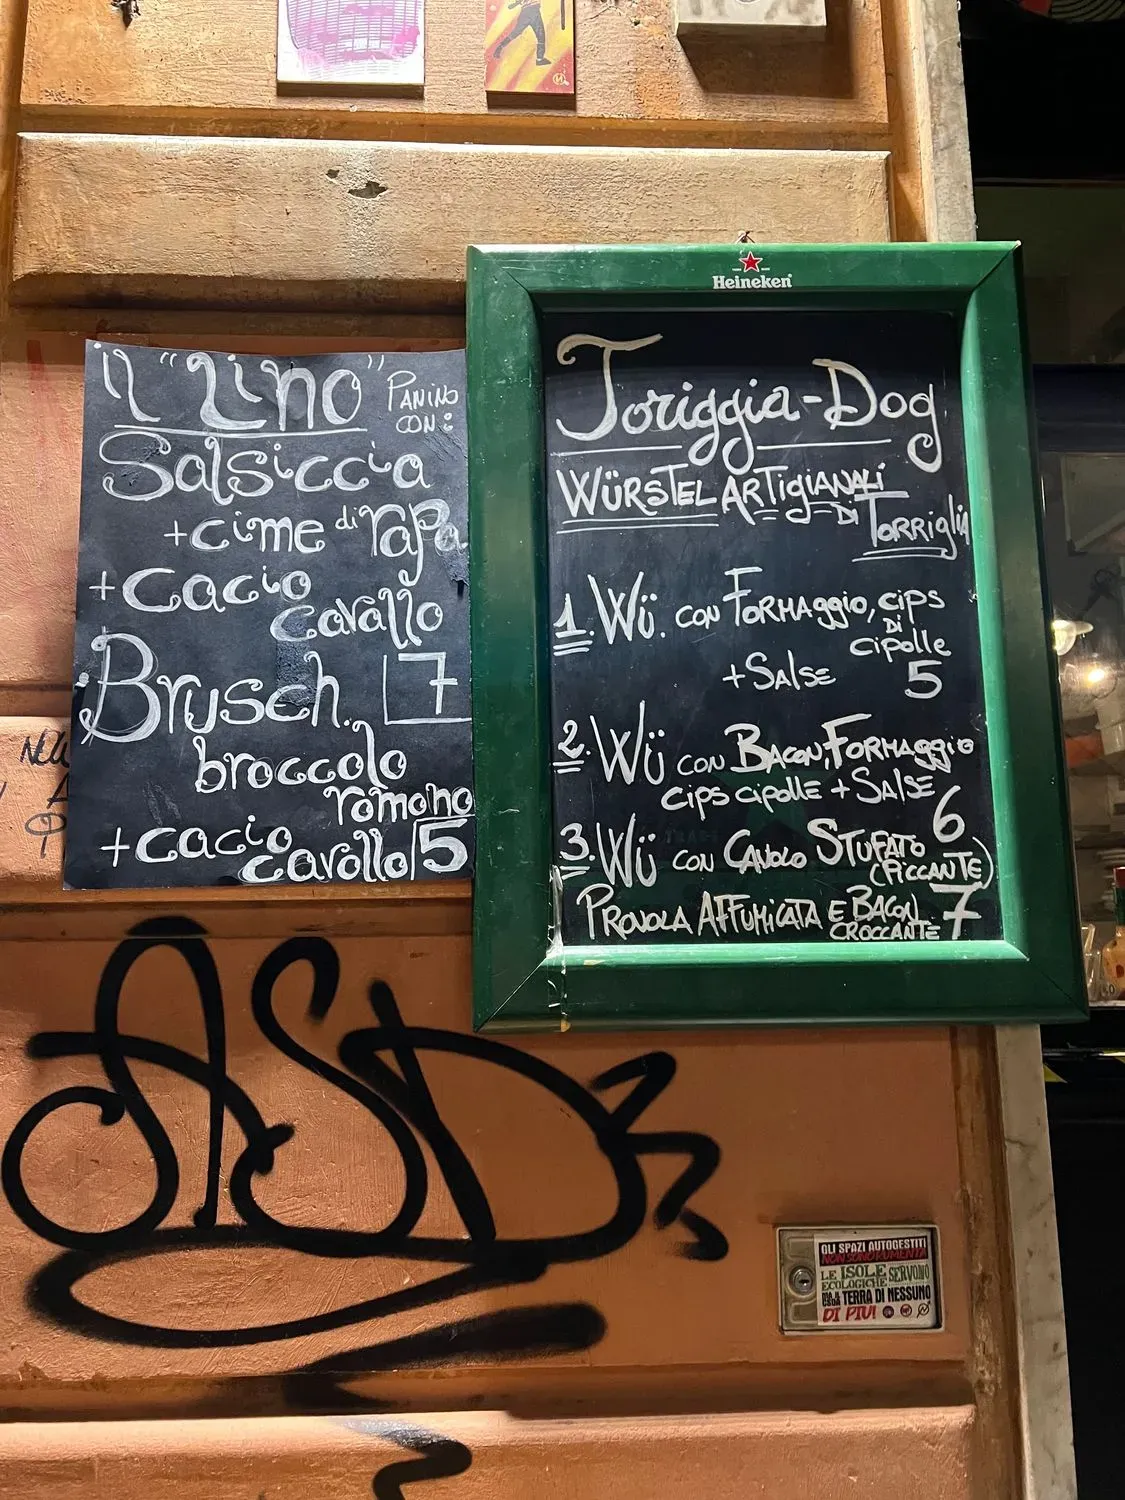 il "Lino" PANINO
CON:
Salsiccia
+cime di rapa
+cacio
cavallo
Brusch. 7
broccolo
romano
+cacio
cavallo 5
Heineken
Toriggia-Dog
WÜRSTEL ARTIGIANALI
DI TORRIGLIA
1. WÜ. CON FORMAGGIO, CIPS
DI
CIPOLLE
+SALSE 5
2. WÜ CON BACON, FORMAGGIO
CIPS CIPOLLE + SALSE 6
3. WÜ CON CAVOLO STUFATO
(PICCANTE)
PROVOLA AFFUMICATA E BACON 7
CROCCANTE
ASD
GLI SPAZI AUTOGESTITI
NON SONO FUMENTA
LE ISOLE SERVONO
ECOLOGICHE
TERRA DI NESSUNO
DI PIU!